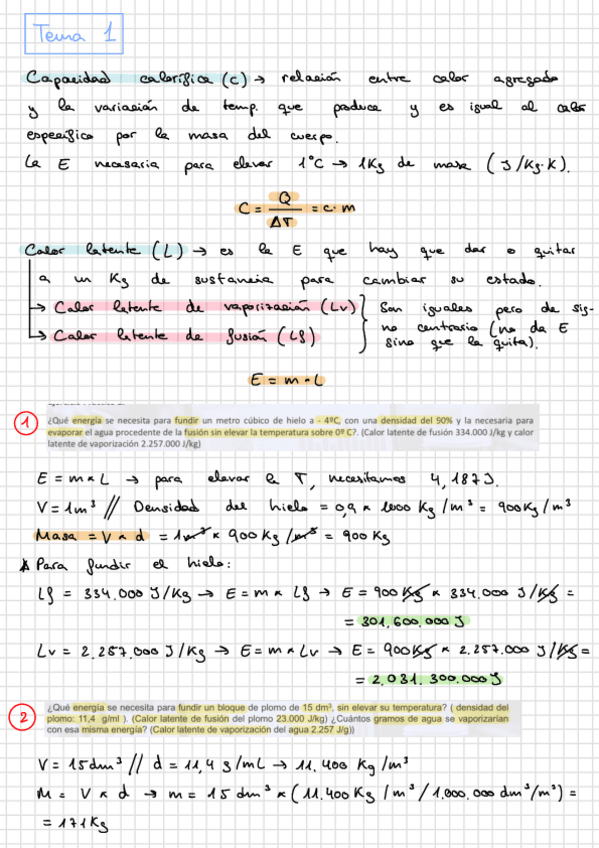 Tema 1
Capacidad calorífica (c) → relación entre calor agregado
y la variación de temp. que produce y es igual al calor
específico por la masa del cuerpo.
La E necesaria para elevar 1°C → 1Kg de masa (J/Kg·K).
C = Q / ΔT = c · m
Calor latente (L) → es la E que hay que dar o quitar
a un Kg de sustancia para cambiar su estado.
→ Calor latente de vaporización (Lv)
→ Calor latente de fusión (Lf)
Son iguales pero de sig-
no contrario (no da E
sino que la quita).
E = m · L
1
¿Qué energía se necesita para fundir un metro cúbico de hielo a - 4ºC, con una densidad del 90% y la necesaria para
evaporar el agua procedente de la fusión sin elevar la temperatura sobre 0º C?. (Calor latente de fusión 334.000 J/kg y calor
latente de vaporización 2.257.000 J/kg)
E = m × L → para elevar la T, necesitamos 4,187J.
V = 1m³ // Densidad del hielo = 0,9 × 1000 Kg/m³ = 900Kg/m³
Masa = V × d = 1m³ × 900 Kg/m³ = 900 Kg
Para fundir el hielo:
Lf = 334.000 J/Kg → E = m × Lf → E = 900 Kg × 334.000 J/Kg =
= 301.600.000 J
Lv = 2.257.000 J/Kg → E = m × Lv → E = 900Kg × 2.257.000 J/Kg =
= 2.031.300.000 J
2
¿Qué energía se necesita para fundir un bloque de plomo de 15 dm³, sin elevar su temperatura? ( densidad del
plomo: 11,4 g/ml ). (Calor latente de fusión del plomo 23.000 J/kg) ¿Cuántos gramos de agua se vaporizarían
con esa misma energía? (Calor latente de vaporización del agua 2.257 J/g))
V = 15dm³ // d = 11,4 g/mL → 11.400 Kg/m³
M = V × d → m = 15 dm³ × (11.400 Kg/m³/1.000.000 dm³/m³) =
= 171Kg